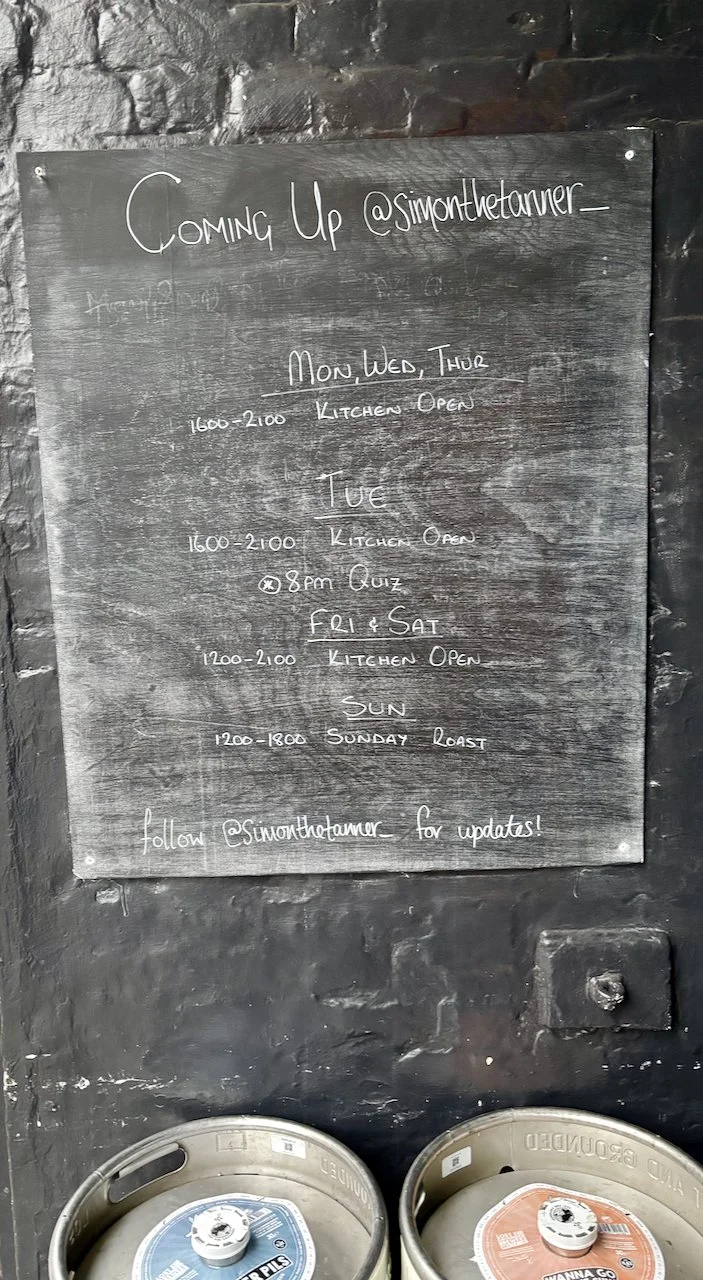 Coming Up @simonthetanner_
Mon, Wed, Thur
1600-2100 Kitchen Open
Tue
1600-2100 Kitchen Open
8pm Quiz
Fri & Sat
1200-2100 Kitchen Open
Sun
1200-1800 Sunday Roast
follow @simonthetanner_ for updates!
AND GROUNDED
PILS
WANNA GO